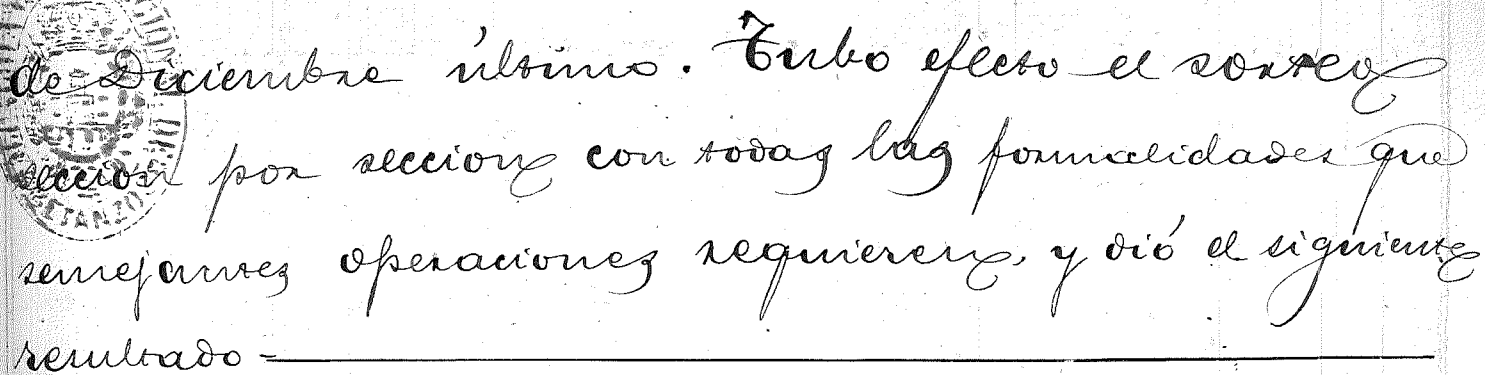 de Diciembre último. Tubo efecto el sorteo
sección por seccion con todas las formalidades que
semejantes operaciones requieren, y dió el siguiente
resultado =